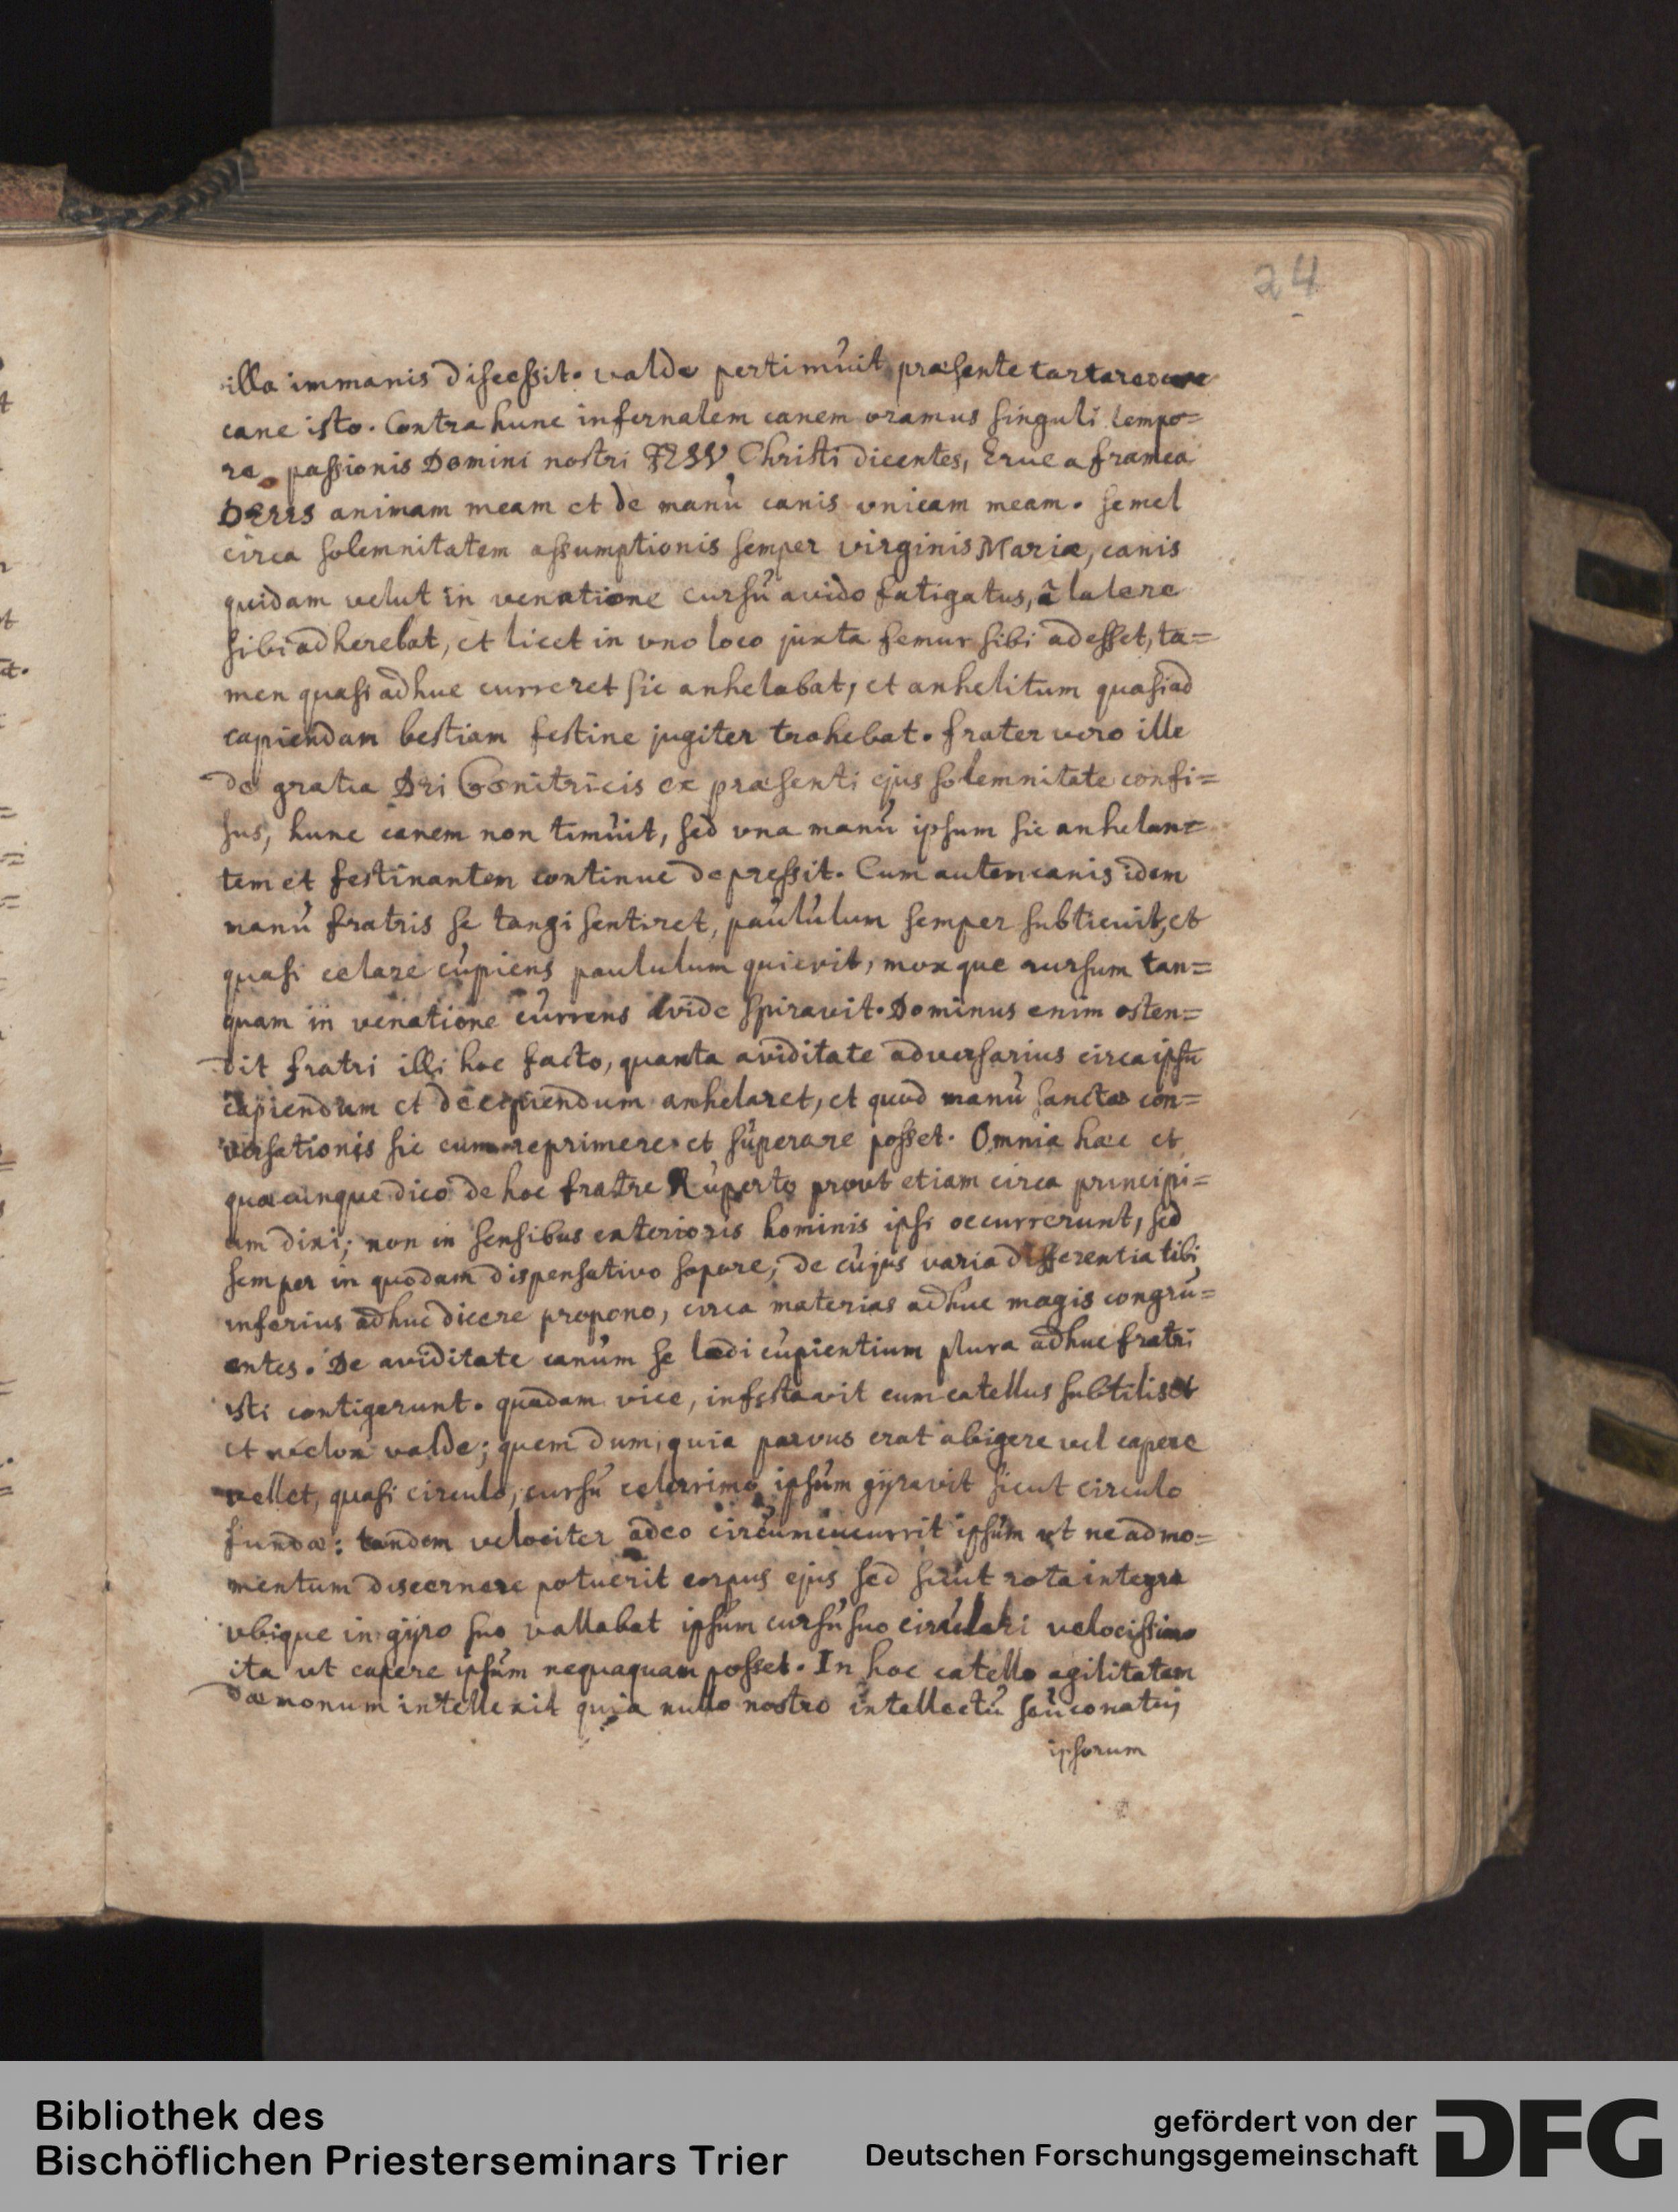 24
illa immanis discessit. valde pertimuit præsente tartareo
cane isto. Contra hunc infernalem canem oramus singuli tempo=
re passionis Domini nostri IESV Christi dicentes, Erue a framea
DEUS animam meam et de manù canis vnicam meam. semel
circa solemnitatem assumptionis semper virginis Mariæ, canis
quidam velut in venatione cursù avido fatigatus, à latere
sibi adherebat, et licet in vno loco juxta femur sibi adesset, ta=
men quasi adhuc curreret sic anhelabat, et anhelitum quasi ad
capiendam bestiam festine jugiter trahebat. frater vero ille
de gratia Dei Genitricis ex præsenti ejus solemnitate confi=
sus, hunc canem non timùit, sed vna manù ipsum sic anhelan=
tem et festinantem continue depressit. Cum autem canis idem
manù fratris se tangi sentiret, paùlùlum semper subticuit, et
quasi celare cùpiens paululum quievit, moxque rursum tan=
quam in venatione cùrrens avide spiravit. Dominus enim osten=
dit fratri illi hoc facto, quanta aviditate adversarius circa ipsū
capiendum et decipiendum anhelaret, et quod manù sanctæ con=
versationis sic eum reprimere et sùperare posset. Omnia hæc et
quæcunque dico de hoc fratre Rùperto prout etiam circa principi=
um dixi; non in sensibus exterioris hominis ipsi occurrerunt, sed
semper in quodam dispensativo sopore, de cùjus varia differentia tibi
inferius adhuc dicere propono, circa materias adhuc magis congrù=
entes. De aviditate canùm se lædi cùpientium plura adhuc fratri
isti contigerunt. quadam vice, infestavit eum catellus subtilis et
et velox valde; quem dum, quia parvus erat abigere vel capere
vellet, quasi circulo, cursù celerrimo ipsùm gÿravit sicut circulo
fundæ: tandem velociter adeo circùmcucurrit ipsùm vt ne ad mo=
mentum discernere potuerit corpus ejus sed sicùt rota integra
vbique in gÿro suo vallabat ipsùm cursù suo circulari velocissimo
ita vt capere ipsùm nequaquam posset. In hoc catello agilitatem
dæmonum intellexit quia nullo nostro intellectù seù conatuj
ipsorum
Bibliothek des
Bischöflichen Priesterseminars Trier
gefördert von der
Deutschen Forschungsgemeinschaft
DFG